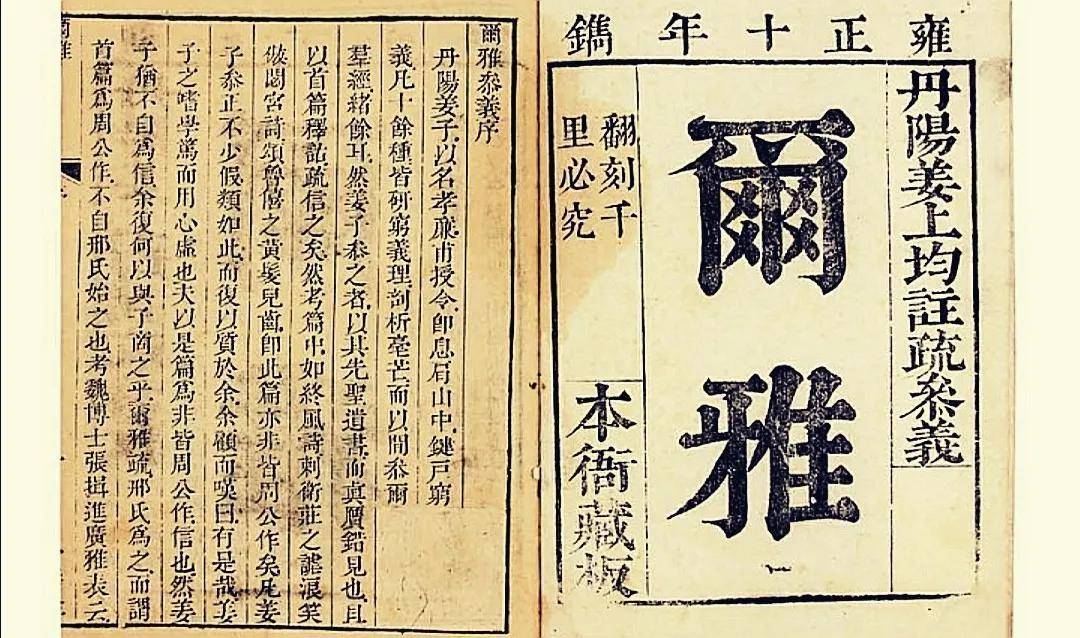 雍正十年鐫
丹陽姜上均註疏叅義
爾雅
一
翻刻千
里必究
本衙藏板
爾雅叅義序
丹陽姜子以名孝廉甫授令卽息肩山中鍵戸窮
義凡十餘種皆研窮義理剖析毫芒而以間叅爾
羣經緒餘耳然姜子叅之者以其先聖遺書而眞贗錯見也且
以首篇釋詁疏信之矣然考篇中如終風詩刺衛莊之謔浪笑
傲閟宮詩頌魯僖之黃髮兒齒卽此篇亦非皆周公作矣凡姜
子叅正不少假類如此而復以質於余余顧而嘆曰有是哉姜
子之嗜學篤而用心虛也夫以是篇爲非皆周公作信也然姜
子猶不自爲信余復何以與子商之乎爾雅疏邢氏爲之而謂
首篇爲周公作不自邢氏始之也考魏博士張揖進廣雅表云
爾雅